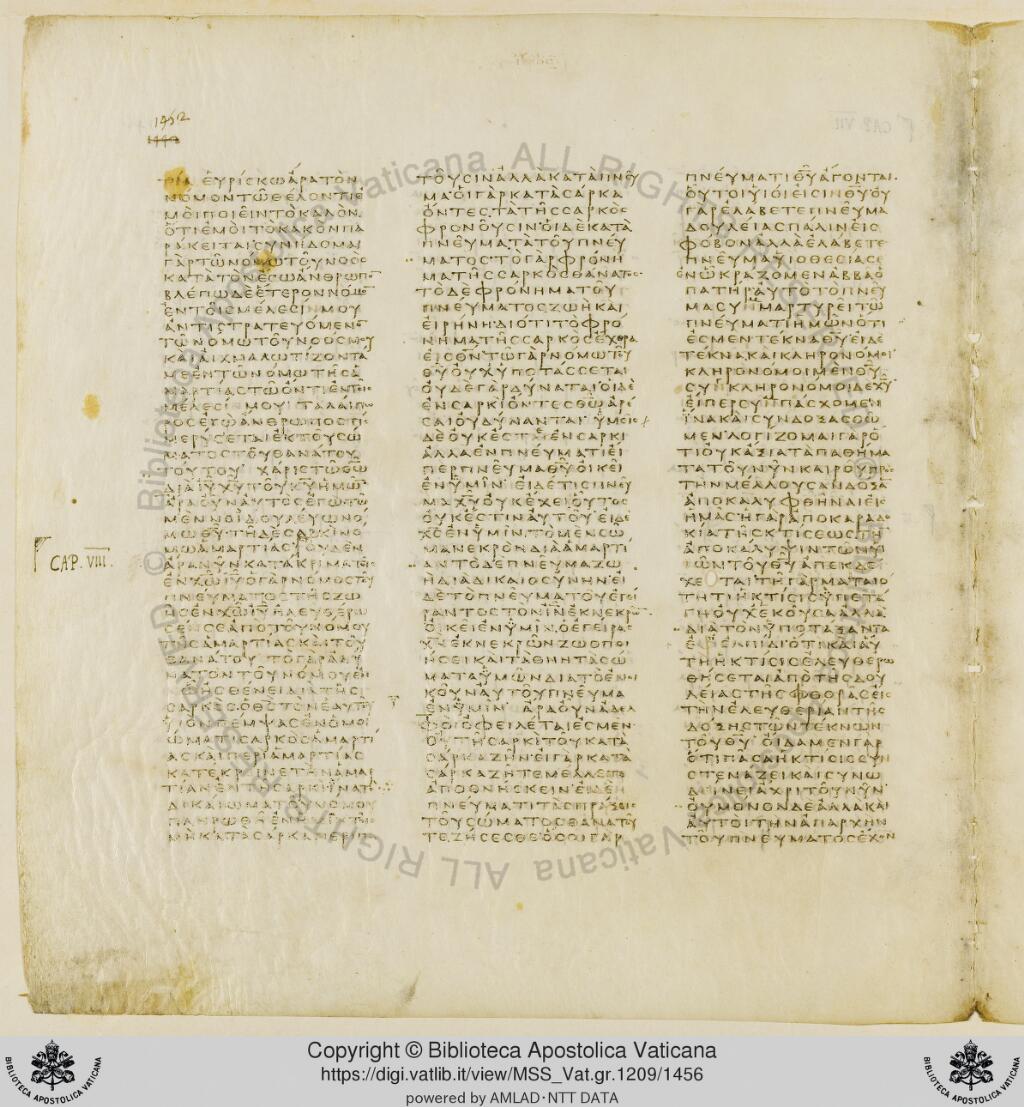 1452
ΕΥΡΙϹΚΩΑΡΑΤΟΝ
ΝΟΜΟΝΤΩΘΕΛΟΝΤΙΕ
ΜΟΙΠΟΙΕΙΝΤΟΚΑΛΟΝ
ΟΤΙΕΜΟΙΤΟΚΑΚΟΝΠΑ
ΡΑΚΕΙΤΑΙϹΥΝΗΔΟΜΑΙ
ΓΑΡΤΩΝΟΜΩΤΟΥΝΟΟϹ
ΚΑΤΑΤΟΝΕϹΩΑΝΘΡΩΠΟ
ΒΛΕΠΩΔΕΕΤΕΡΟΝΝΟΜΟ
ΕΝΤΟΙϹΜΕΛΕϹΙΝΜΟΥ
ΑΝΤΙϹΤΡΑΤΕΥΟΜΕΝΟ
ΤΩΝΟΜΩΤΟΥΝΟΟϹΜΟΥ
ΚΑΙΑΙΧΜΑΛΩΤΙΖΟΝΤΑ
ΜΕΕΝΤΩΝΟΜΩΤΗϹΑ
ΜΑΡΤΙΑϹΤΩΟΝΤΙΕΝΤΟΙϹ
ΜΕΛΕϹΙΝΜΟΥΤΑΛΑΙΠΩ
ΡΟϹΕΓΩΑΝΘΡΩΠΟϹΤΙϹ
ΜΕΡΥϹΕΤΑΙΕΚΤΟΥϹΩ
ΜΑΤΟϹΤΟΥΘΑΝΑΤΟΥ
ΤΟΥΤΟΥΧΑΡΙϹΤΩΘΩ
ΔΙΑΙΥΧΥΤΟΥΚΥΗΜΩ
ΑΡΑΟΥΝΑΥΤΟϹΕΓΩΤΩ
ΜΕΝΝΟΙΔΟΥΛΕΥΩΝΟ
ΜΩΘΥΤΗΔΕϹΑΡΚΙΝΟ
ΜΩΑΜΑΡΤΙΑϹΟΥΔΕΝ
ΑΡΑΝΥΝΚΑΤΑΚΡΙΜΑΤΟΙϹ
ΕΝΧΩΙΥΟΓΑΡΝΟΜΟϹΤΟΥ
ΠΝΕΥΜΑΤΟϹΤΗϹΖΩ
ΗϹΕΝΧΩΙΥΗΛΕΥΘΕΡΩ
ϹΕΝϹΕΑΠΟΤΟΥΝΟΜΟΥ
ΤΗϹΑΜΑΡΤΙΑϹΚΑΙΤΟΥ
ΘΑΝΑΤΟΥΤΟΓΑΡΑΔΥ
ΝΑΤΟΝΤΟΥΝΟΜΟΥΕΝ
ΩΗϹΘΕΝΕΙΔΙΑΤΗϹ
ϹΑΡΚΟϹΟΘϹΤΟΝΕΑΥΤΟΥ
ΥΙΟΝΠΕΜΨΑϹΕΝΟΜΟΙ
ΩΜΑΤΙϹΑΡΚΟϹΑΜΑΡΤΙ
ΑϹΚΑΙΠΕΡΙΑΜΑΡΤΙΑϹ
ΚΑΤΕΚΡΙΝΕΤΗΝΑΜΑΡ
ΤΙΑΝΕΝΤΗϹΑΡΚΙΙΝΑΤΟ
ΔΙΚΑΙΩΜΑΤΟΥΝΟΜΟΥ
ΠΛΗΡΩΘΗΕΝΗΜΙΝΤΟΙϹ
ΜΗΚΑΤΑϹΑΡΚΑΠΕΡΙΠΑ
CAP. VIII.
ΤΟΥϹΙΝΑΛΛΑΚΑΤΑΠΝΕΥ
ΜΑΟΙΓΑΡΚΑΤΑϹΑΡΚΑ
ΟΝΤΕϹΤΑΤΗϹϹΑΡΚΟϹ
ΦΡΟΝΟΥϹΙΝΟΙΔΕΚΑΤΑ
ΠΝΕΥΜΑΤΑΤΟΥΠΝΕΥ
ΜΑΤΟϹΤΟΓΑΡΦΡΟΝΗ
ΜΑΤΗϹϹΑΡΚΟϹΘΑΝΑΤΟϹ
ΤΟΔΕΦΡΟΝΗΜΑΤΟΥ
ΠΝΕΥΜΑΤΟϹΖΩΗΚΑΙ
ΕΙΡΗΝΗΔΙΟΤΙΤΟΦΡΟ
ΝΗΜΑΤΗϹϹΑΡΚΟϹΕΧΘΡΑ
ΕΙϹΘΝΤΩΓΑΡΝΟΜΩΤΟΥ
ΘΥΟΥΧΥΠΟΤΑϹϹΕΤΑΙ
ΟΥΔΕΓΑΡΔΥΝΑΤΑΙΟΙΔΕ
ΕΝϹΑΡΚΙΟΝΤΕϹΘΩΑΡΕ
ϹΑΙΟΥΔΥΝΑΝΤΑΙΥΜΕΙϹ
ΔΕΟΥΚΕϹΤΕΕΝϹΑΡΚΙ
ΑΛΛΑΕΝΠΝΕΥΜΑΤΙΕΙ
ΠΕΡΠΝΕΥΜΑΘΥΟΙΚΕΙ
ΕΝΥΜΙΝΕΙΔΕΤΙϹΠΝΕΥ
ΜΑΧΥΟΥΚΕΧΕΙΟΥΤΟϹ
ΟΥΚΕϹΤΙΝΑΥΤΟΥΕΙΔΕ
ΧϹΕΝΥΜΙΝΤΟΜΕΝϹΩ
ΜΑΝΕΚΡΟΝΔΙΑΑΜΑΡΤΙ
ΑΝΤΟΔΕΠΝΕΥΜΑΖΩ
ΗΔΙΑΔΙΚΑΙΟϹΥΝΗΝΕΙ
ΔΕΤΟΠΝΕΥΜΑΤΟΥΕΓΕΙ
ΡΑΝΤΟϹΤΟΝΙΝΕΚΝΕΚΡΩ
ΟΙΚΕΙΕΝΥΜΙΝΟΕΓΕΙΡΑϹ
ΧΝΕΚΝΕΚΡΩΝΖΩΟΠΟΙ
ΗϹΕΙΚΑΙΤΑΘΝΗΤΑϹΩ
ΜΑΤΑΥΜΩΝΔΙΑΤΟΕΝΟΙ
ΚΟΥΝΑΥΤΟΥΠΝΕΥΜΑ
ΕΝΥΜΙΝΑΡΑΟΥΝΑΔΕΛ
ΦΟΙΟΦΕΙΛΕΤΑΙΕϹΜΕΝ
ΟΥΤΗϹΑΡΚΙΤΟΥΚΑΤΑ
ϹΑΡΚΑΖΗΝΕΙΓΑΡΚΑΤΑ
ϹΑΡΚΑΖΗΤΕΜΕΛΛΕΤΕ
ΑΠΟΘΝΗϹΚΕΙΝΕΙΔΕ
ΠΝΕΥΜΑΤΙΤΑϹΠΡΑΞΕΙϹ
ΤΟΥϹΩΜΑΤΟϹΘΑΝΑΤΟΥ
ΤΕΖΗϹΕϹΘΕΟϹΟΙΓΑΡ
ΠΝΕΥΜΑΤΙΘΥΑΓΟΝΤΑΙ
ΟΥΤΟΙΥΙΟΙΕΙϹΙΝΘΥΟΥ
ΓΑΡΕΛΑΒΕΤΕΠΝΕΥΜΑ
ΔΟΥΛΕΙΑϹΠΑΛΙΝΕΙϹ
ΦΟΒΟΝΑΛΛΑΕΛΑΒΕΤΕ
ΠΝΕΥΜΑΥΙΟΘΕϹΙΑϹ
ΕΝΩΚΡΑΖΟΜΕΝΑΒΒΑΟ
ΠΑΤΗΡΑΥΤΟΤΟΠΝΕΥ
ΜΑϹΥΜΜΑΡΤΥΡΕΙΤΩ
ΠΝΕΥΜΑΤΙΗΜΩΝΟΤΙ
ΕϹΜΕΝΤΕΚΝΑΘΥΕΙΔΕ
ΤΕΚΝΑΚΑΙΚΛΗΡΟΝΟΜΟΙ
ΚΛΗΡΟΝΟΜΟΙΜΕΝΘΥ
ϹΥΓΚΛΗΡΟΝΟΜΟΙΔΕΧΥ
ΕΙΠΕΡϹΥΜΠΑϹΧΟΜΕΝ
ΙΝΑΚΑΙϹΥΝΔΟΞΑϹΘΩ
ΜΕΝΛΟΓΙΖΟΜΑΙΓΑΡΟ
ΤΙΟΥΚΑΞΙΑΤΑΠΑΘΗΜΑ
ΤΑΤΟΥΝΥΝΚΑΙΡΟΥΠΡΟϹ
ΤΗΝΜΕΛΛΟΥϹΑΝΔΟΞΑ
ΑΠΟΚΑΛΥΦΘΗΝΑΙΕΙϹ
ΗΜΑϹΗΓΑΡΑΠΟΚΑΡΑΔΟ
ΚΙΑΤΗϹΚΤΙϹΕΩϹΤΗ
ΑΠΟΚΑΛΥΨΙΝΤΩΝΥΙ
ΩΝΤΟΥΘΥΑΠΕΚΔΕ
ΧΕΤΑΙΤΗΓΑΡΜΑΤΑΙΟ
ΤΗΤΙΗΚΤΙϹΙϹΥΠΕΤΑ
ΓΗΟΥΧΕΚΟΥϹΑΑΛΛΑ
ΔΙΑΤΟΝΥΠΟΤΑΞΑΝΤΑ
ΕΦΕΛΠΙΔΙΟΤΙΚΑΙΑΥ
ΤΗΗΚΤΙϹΙϹΕΛΕΥΘΕΡΩ
ΘΗϹΕΤΑΙΑΠΟΤΗϹΔΟΥ
ΛΕΙΑϹΤΗϹΦΘΟΡΑϹΕΙϹ
ΤΗΝΕΛΕΥΘΕΡΙΑΝΤΗϹ
ΔΟΞΗϹΤΩΝΤΕΚΝΩΝ
ΤΟΥΘΥΟΙΔΑΜΕΝΓΑΡ
ΟΤΙΠΑϹΑΗΚΤΙϹΙϹϹΥΝ
ϹΤΕΝΑΖΕΙΚΑΙϹΥΝΩ
ΔΙΝΕΙΑΧΡΙΤΟΥΝΥΝ
ΟΥΜΟΝΟΝΔΕΑΛΛΑΚΑΙ
ΑΥΤΟΙΤΗΝΑΠΑΡΧΗΝ
ΤΟΥΠΝΕΥΜΑΤΟϹΕΧΟΝ
Copyright © Biblioteca Apostolica Vaticana
https://digi.vatlib.it/view/MSS_Vat.gr.1209/1456
powered by AMLAD·NTT DATA
BIBLIOTECA APOSTOLICA VATICANA
BIBLIOTECA APOSTOLICA VATICANA